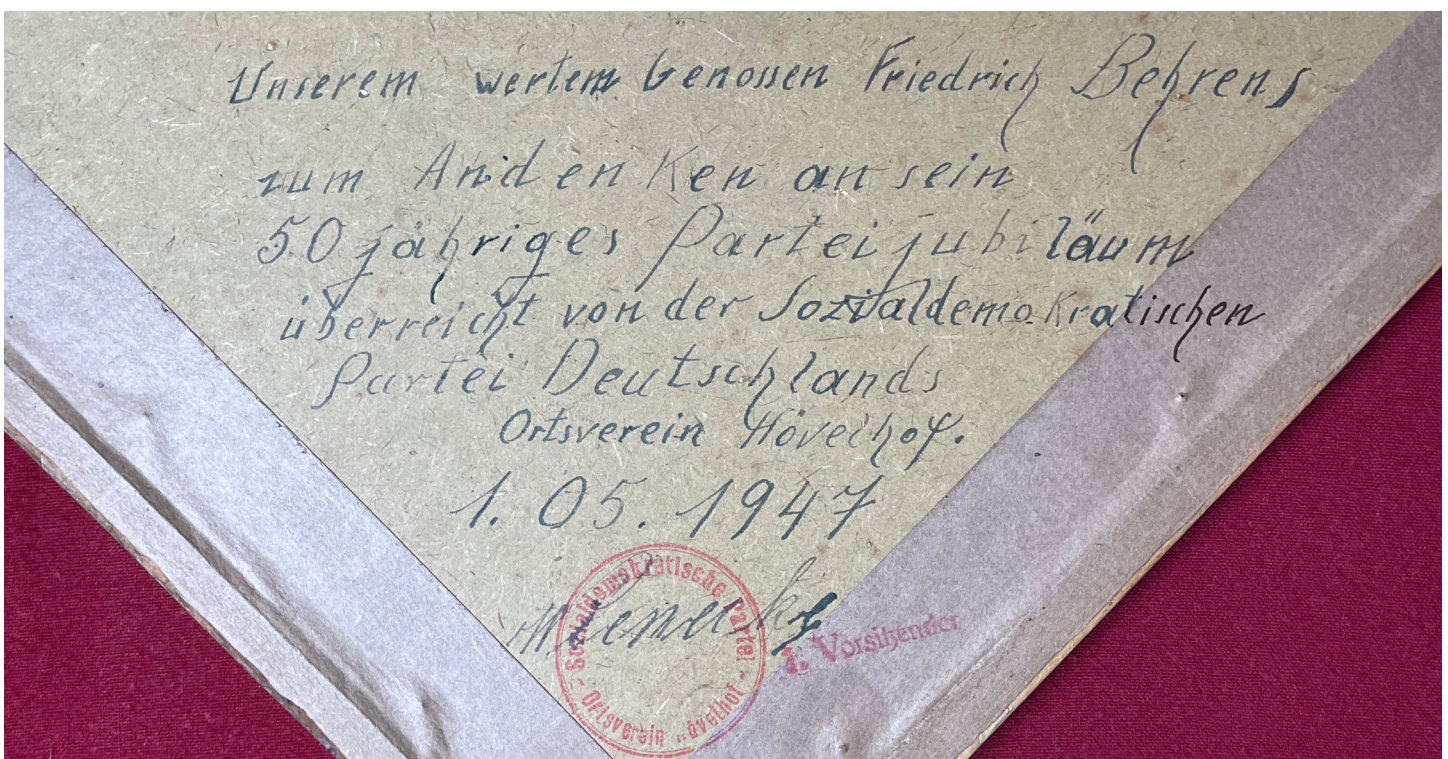 Unserem wertem Genossen Friedrich Behrens
zum Andenken an sein
50 jähriges Parteijubiläum
überreicht von der Sozialdemokratischen
Partei Deutschlands
Ortsverein Hövelhof.
1. 05. 1947
Sozialdemokratische Partei
Ortsverein Hövelhof
1. Vorsitzender